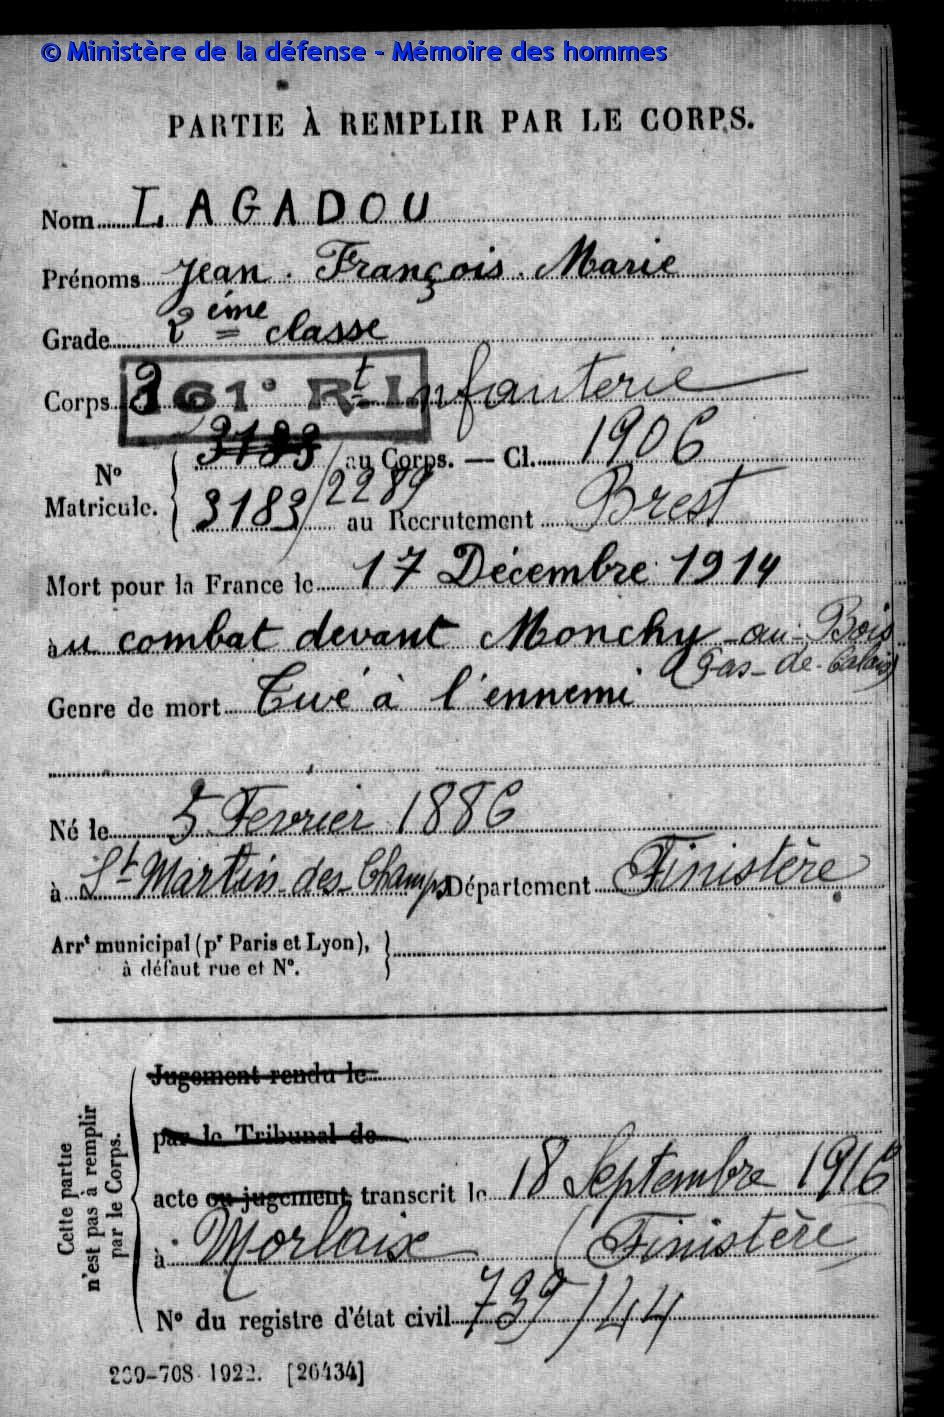 © Ministère de la défense - Mémoire des hommes
PARTIE À REMPLIR PAR LE CORPS.
Nom LAGADOU
Prénoms Jean. François. Marie
Grade 2ème classe
Corps 361e R.t Infanterie
N° Matricule. 3183 au Corps. — Cl. 1906
3183/2289 au Recrutement Brest
Mort pour la France le 17 Décembre 1914
au combat devant Monchy-au-Bois
(Pas-de-Calais)
Genre de mort Tué à l'ennemi
Né le 5 Fevrier 1886
à St Martin-des-Champs Département Finistère
Arrt municipal (pr Paris et Lyon),
à défaut rue et N°.
Cette partie n'est pas à remplir par le Corps.
Jugement rendu le
par le Tribunal de
acte ou jugement transcrit le 18 Septembre 1916
à Morlaix (Finistère)
N° du registre d'état civil 739/44
1922. [26434]